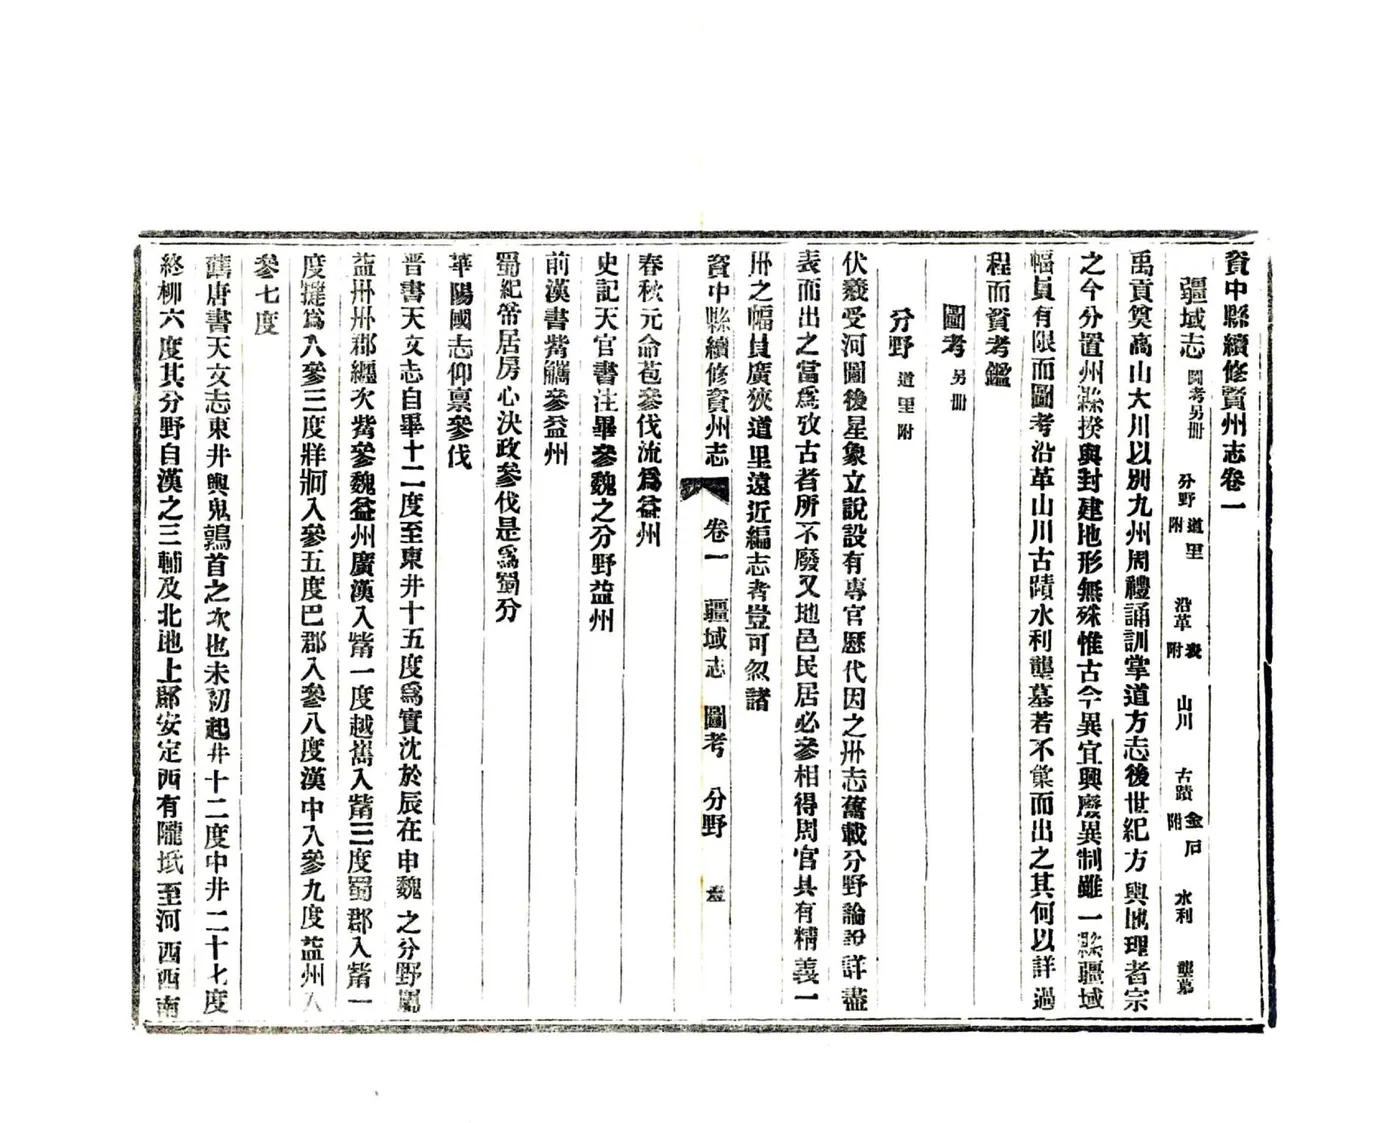 資中縣續修資州志卷一
疆域志 圖考另册 分野 道里附 沿革 表附 山川 古蹟 金石附 水利 壟墓
禹貢奠高山大川以别九州周禮誦訓掌道方志後世紀方輿地理者宗
之今分置州縣揆與封建地形無殊惟古今異宜興廢異制雖一縣疆域
幅員有限而圖考沿革山川古蹟水利壟墓若不彙而出之其何以詳過
程而資考鑑
圖考 另册
分野 道里附
伏羲受河圖後星象立說設有專官歷代因之州志舊載分野論說詳盡
表而出之當爲攷古者所不廢又地邑民居必參相得周官具有精義一
州之幅員廣狹道里遠近編志者豈可忽諸
資中縣續修資州志 卷一 疆域志 圖考 分野
春秋元命苞參伐流爲益州
史記天官書注畢參魏之分野益州
前漢書觜觿參益州
蜀紀帝居房心決政參伐是爲蜀分
華陽國志仰禀參伐
晋書天文志自畢十二度至東井十五度爲實沈於辰在申魏之分野屬
益州州郡纏次觜參魏益州廣漢入觜一度越巂入觜三度蜀郡入觜一
度犍爲入參三度牂牁入參五度巴郡入參八度漢中入參九度益州入
參七度
舊唐書天文志東井輿鬼鶉首之次也未初起井十二度中井二十七度
終柳六度其分野自漢之三輔及北地上郡安定西有隴坻至河西西南